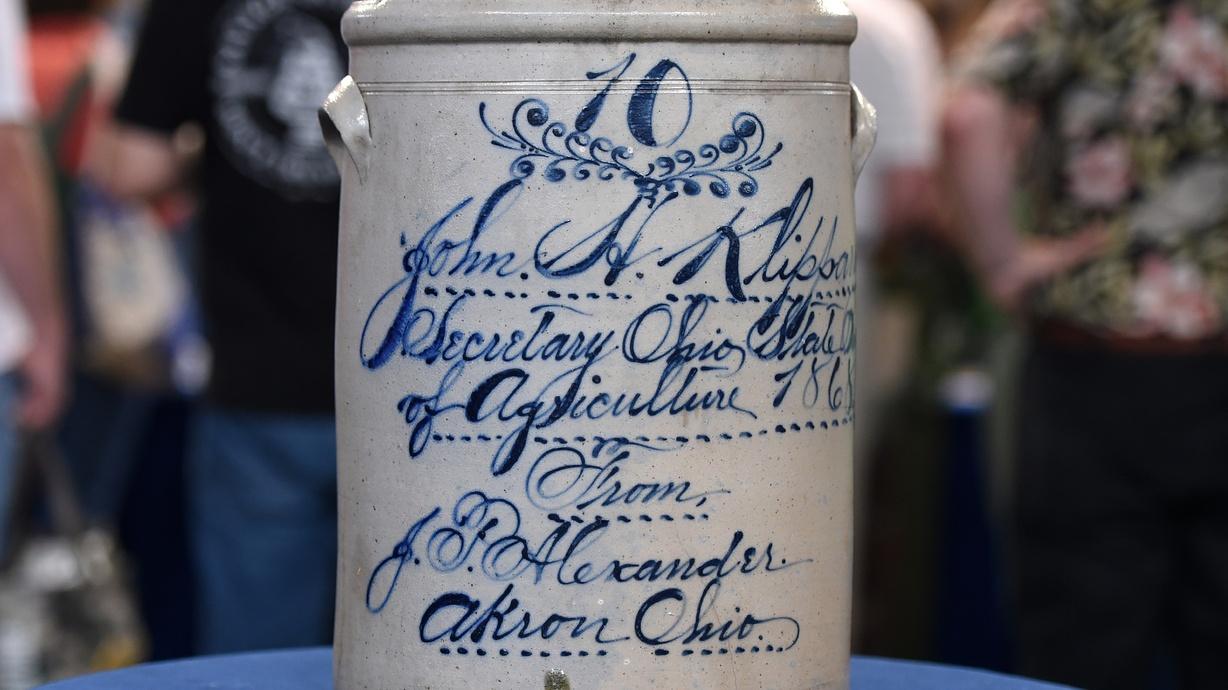 10
John. H. Klippar
Secretary Ohio State
of Agriculture 1868
From,
J. P. Alexander.
Akron Ohio.